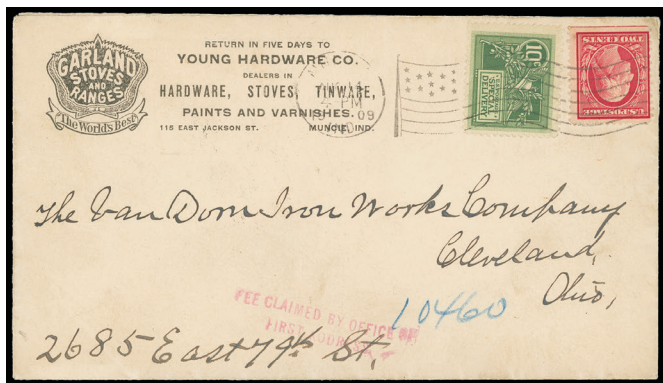 GARLAND
STOVES
AND
RANGES
The World's Best
RETURN IN FIVE DAYS TO
YOUNG HARDWARE CO.
DEALERS IN
HARDWARE, STOVES, TINWARE,
PAINTS AND VARNISHES.
115 EAST JACKSON ST. MUNCIE, IND.
PM
09
IND.
10c
SPECIAL
DELIVERY
TWO CENTS
The Van Dorn Iron Works Company
Cleveland,
Ohio,
10460
FEE CLAIMED BY OFFICE OF
FIRST ADDRESS
2685 East 79th St.